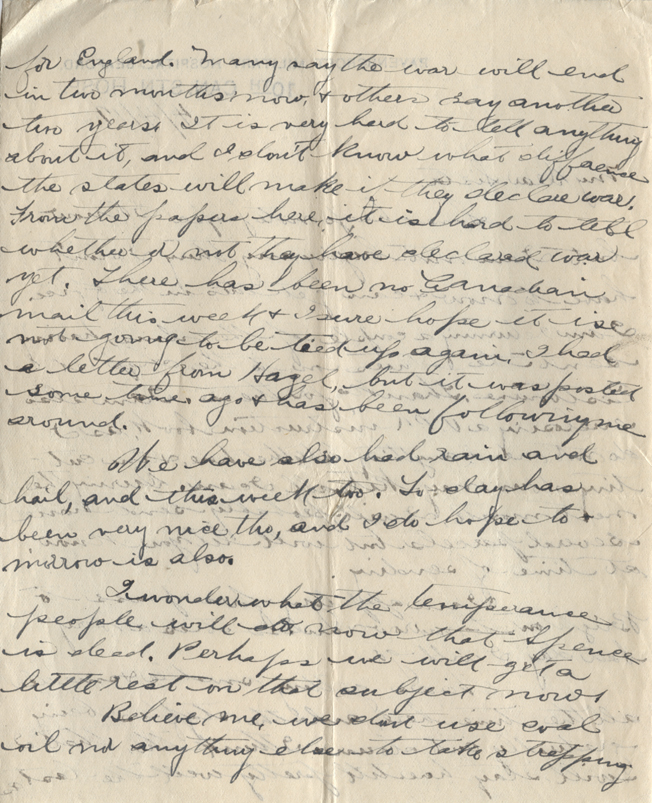 for England. Many say the war will end
in two months now, & others say another
two years. It is very hard to tell anything
about it, and I don't know what difference
the states will make if they declare war.
From the papers here, it is hard to tell
whether or not they have declared war
yet. There has been no Canadian
mail this week & I sure hope it is
not going to be tied up again. I had
a letter from Hazel, but it was posted
some time ago & has been following me
around.
We have also had rain and
hail, and this week too. To day has
been very nice tho, and I do hope to
morrow is also.
I wonder what the temperance
people will do now that Spence
is dead. Perhaps we will get a
little rest on that subject now.
Believe me, we dont use coal
oil nor anything else to take strapping